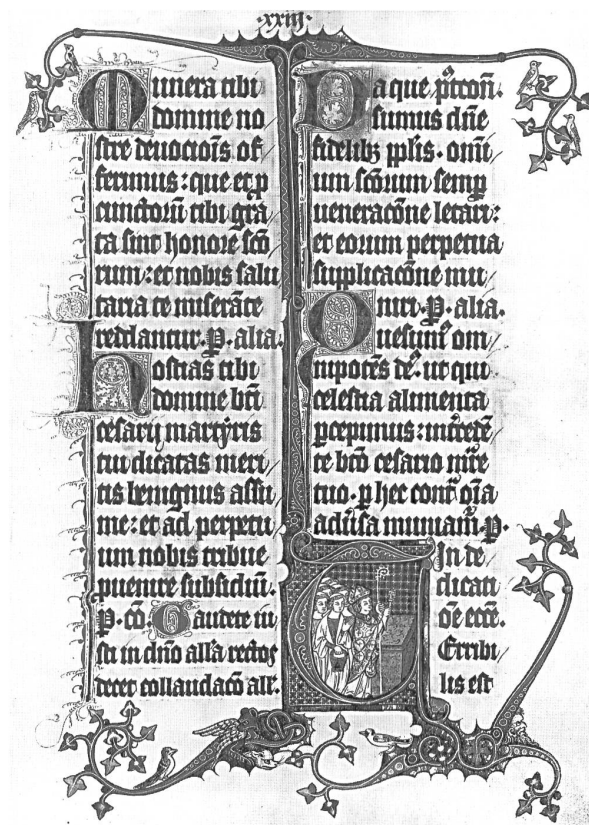 ·xxiij·
Munera tibi
domine no
stre deuocōis of
ferimus: que et p
cunctorū tibi grā
ta sint honore scō
rum: et nobis salu
taria te miserāte
reddantur. P. alia.
Hostias tibi
domine bti
cesarij martyris
tui dicatas meri
tis benignus assu
me: et ad perpetu
um nobis tribue
puenire subsidiū.
P. cō. Gaudete iu
sti in dño alla rectos
decet collaudacō all.
Da que
sumus dñe
fidelibz pplis. omni
um scōrum semp
ueneracōne letari:
et eorum perpetua
supplicacōne mu
niri. P. alia.
Quesumꝰ om
nipotēs dē. ut qui
celestia alimenta
pcepimus:
te btō cesario mre
tuo. p hec contͣ oīa
aduͥsa muniamͬ. P.
In de
dicati
oē ecce.
Terribi
lis est